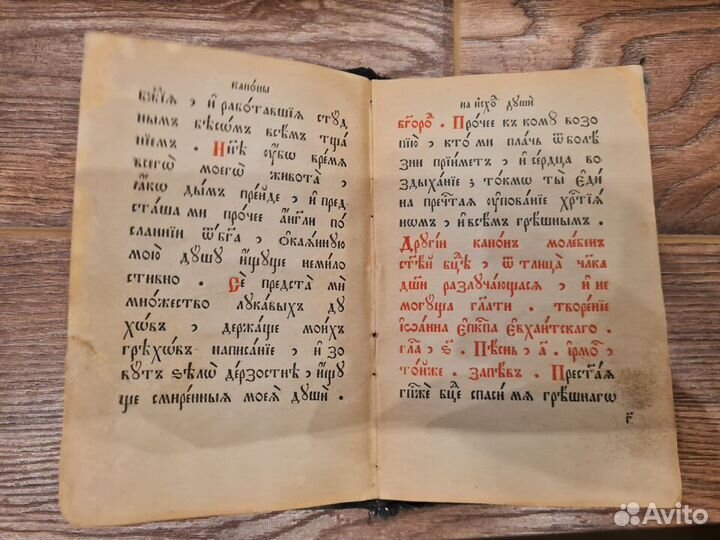 КАНО́НЫ
бж҃їѧ , и҆ рабо́тавшїѧ стꙋ́д
ны́мъ бѣсѡ́мъ всѣ́мъ тща́
нїемъ . Ны́нѣ ᲂу҆́бѡ вре́мѧ
всегѡ̀ моегѡ̀ живота̀ ,
ꙗ҆́кѡ ды́мъ пре́йде , и҆ пред
ста́ша ми про́чее а҆́нг҃ли по́
сланнїи ѿ бг҃а , ѻ҆каѧ́ннꙋю
мою̀ дꙋ́шꙋ и҆́щꙋще неми́ло
стивно . Се́ предста̀ мѝ
мно́жество лꙋка́выхъ дꙋ́
хѡвъ , держа́ще мои́хъ
грѣ́хѡвъ написа́нїе , и҆ зо
вꙋ́тъ ѕѣлѡ̀ де́рзостнѣ , и҆́щꙋ
ще смире́нныѧ моеѧ̀ дꙋшѝ .
НА И҆СХО́Д ДꙊШѝ
бг҃оро́д . Про́чее къ комꙋ̀ возо
пїю̀ , кто̀ ми пла́чь ѿ болѣ́
зни прїи́метъ , и҆ се́рдца во
здыха́нїе ; то́кмѡ ты̀ є҆ди́
на преч҃таѧ ᲂу҆пова́нїе хрⷭ҇тїѧ́
нѡмъ , и҆ всѣ́мъ грѣ́шнымъ .
Дрꙋгі́й кано́нъ моле́бенъ
ст҃ѣ́й бц҃ѣ , ѿ лица̀ чл҃ка
дш҃и разлꙋча́ющасѧ , и҆ не
могꙋ́ща гл҃ати . творе́нїе
і҆ѡа́нна є҆пⷭ҇кпа є҆вхаи́тскаго .
гла́ , ѕ҃ . Пѣ́снь , а҃ . і҆рмо́с ,
то́йже . запѣ́въ . Прест҃а́ѧ
гпⷭ҇жѐ бц҃е спаси́ мѧ грѣ́шнаго
г҃
Avito